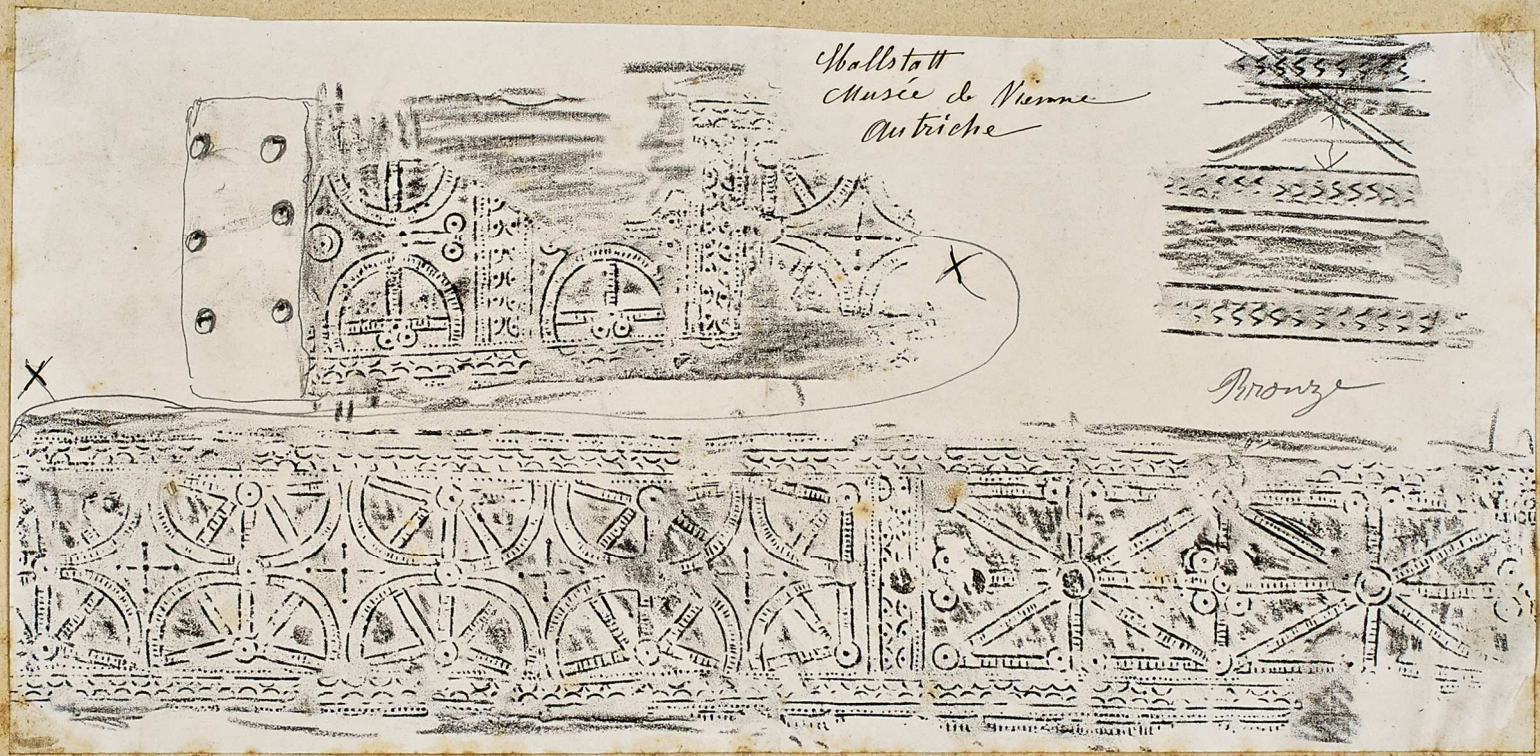 Hallstatt
Musée de Vienne
Autriche
Bronze